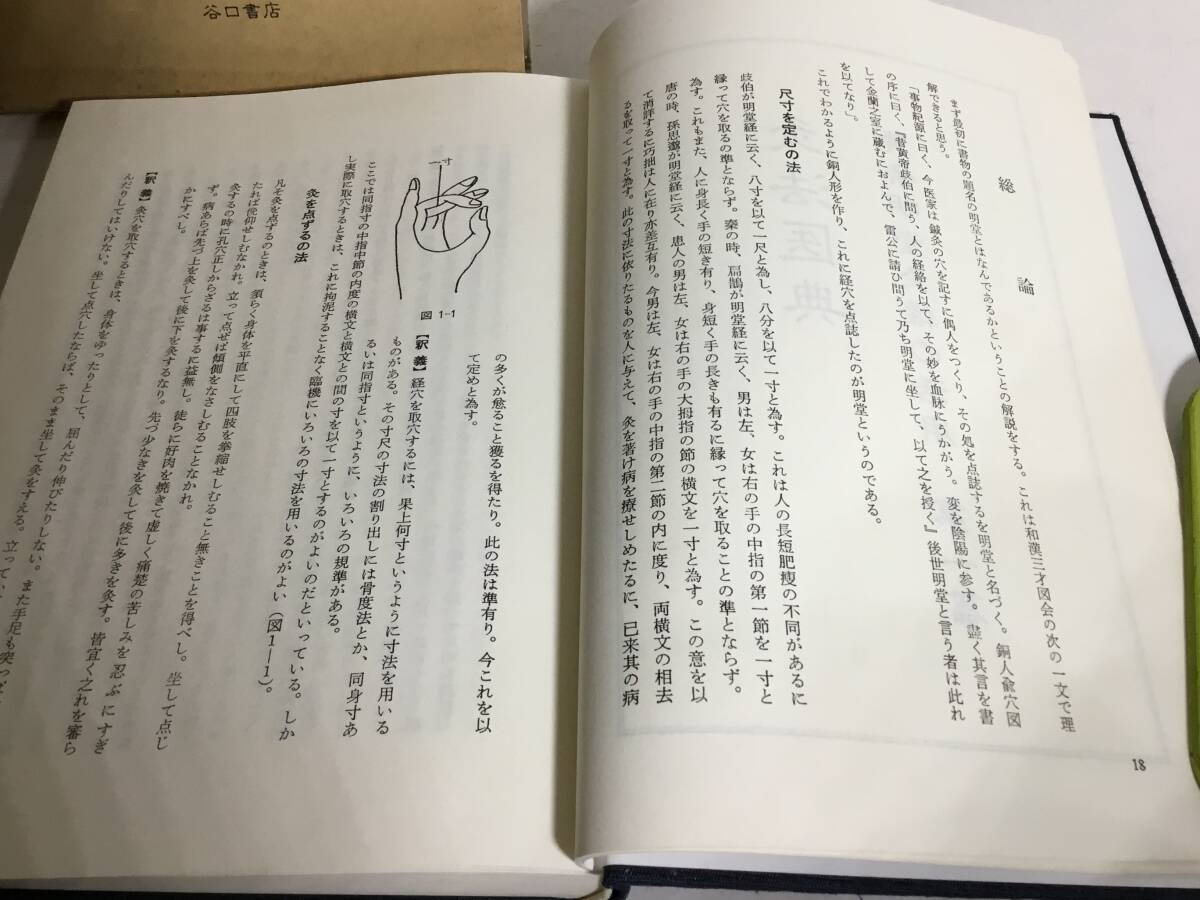 谷口書店
総論
まず最初に書物の題名の明堂とはなんであるかということの解説をする。これは和漢三才図会の次の一文で理
解できると思う。
「事物紀源に曰く、今医家は鍼灸の穴を記すに偶人をつくり、その処を点誌するを明堂と名づく。銅人兪穴図
の序に曰く、『昔黄帝岐伯に問う、人の経絡を以て、その妙を血脉にうかがう。変を陰陽に参す。盡く其言を書
して金蘭之室に蔵むにおよんで、雷公に請ひ問うて乃ち明堂に坐して、以て之を授く』後世明堂と言う者は此れ
を以てなり」。
これでわかるように銅人形を作り、これに経穴を点誌したのが明堂というのである。
尺寸を定むの法
岐伯が明堂経に云く、八寸を以て一尺と為し、八分を以て一寸と為す。これは人の長短肥痩の不同があるに
縁って穴を取るの準とならず。秦の時、扁鵲が明堂経に云く、男は左、女は右の手の中指の第一節を一寸と
為す。これもまた、人に身長く手の短き有り、身短く手の長きも有るに縁って穴を取ることの準とならず。
唐の時、孫思邈が明堂経に云く、患人の男は左、女は右の手の大拇指の節の横文を一寸と為す。この意を以
て消詳するに巧拙は人に在り亦差互有り。今男は左、女は右の手の中指の第二節の内に度り、両横文の相去
るを取って一寸と為す。此の寸法に依りたるものを人に与えて、灸を著け病を療せしめたるに、已来其の病
18
の多くが愈ること獲るを得たり。此の法は準有り。今これを以
て定めと為す。
【釈 義】経穴を取穴するには、果上何寸というように寸法を用いる
ものがある。その寸尺の寸法の割り出しには骨度法とか、同身寸あ
るいは同指寸というように、いろいろの規準がある。
ここでは同指寸の中指中節の内度の横文と横文との間の寸を以て一寸とするのがよいのだといっている。しか
し実際に取穴するときは、これに拘泥することなく臨機にいろいろの寸法を用いるのがよい(図1―1)。
一寸
図 1-1
灸を点ずるの法
凡そ灸を点ずるのときは、須らく身体を平直にして四肢を拳縮せしむること無きことを得べし。坐して点じ
たれば俛仰せしむなかれ。立って点せば傾側をなさしむることなかれ。
灸するの時に孔穴正しからざるは事するに益無し。徒らに好肉を焼きて虚しく痛楚の苦しみを忍ぶ にすぎ
ず。病あらば先づ上を灸して後に下を灸するなり。先づ少なきを灸して後に多きを灸す。皆宜く之れを審ら
かにすべし。
【釈 義】灸穴を取穴するときは、身体をゆったりとして、屈んだり伸びたりしない。また手足も突っぱ
んだりしてはいけない。坐して点穴したならば、そのまま坐して灸をすえる。立ってい